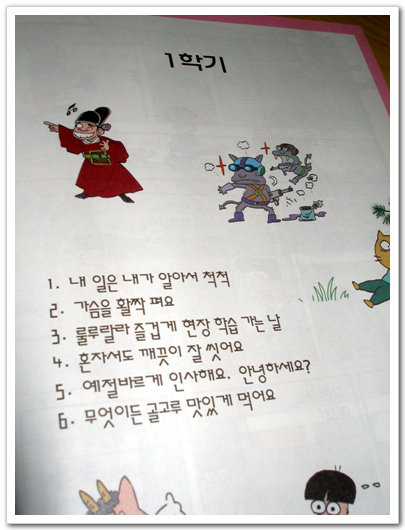 1학기
1. 내 일은 내가 알아서 척척
2. 가슴을 활짝 펴요
3. 룰루랄라 즐겁게 현장 학습 가는 날
4. 혼자서도 깨끗이 잘 씻어요
5. 예절바르게 인사해요. 안녕하세요?
6. 무엇이든 골고루 맛있게 먹어요